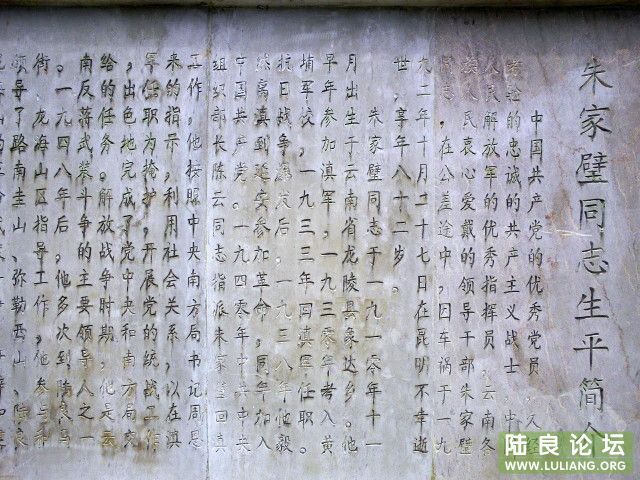 朱家璧同志生平简介
中国共产党的优秀党员,久经
考验的忠诚的共产主义战士,中
人民解放军的优秀指挥员,云南各
族人民衷心爱戴的领导干部朱家璧
同志,在公差途中,因车祸于一九
九二年十月二十七日在昆明不幸逝
世,享年八十二岁。
朱家璧同志于一九一零年十一
月出生于云南省龙陵县象达乡。他
早年参加滇军,一九三零年考入黄
埔军校,一九三三年回滇军任职。
抗日战争爆发后,一九三八年他毅
然离滇到延安参加革命,同年加入
中国共产党。一九四零年中共中央
组织部长陈云同志指派朱家璧回滇
工作,他按照中央南方局书记周恩
来的指示,利用社会关系,以在滇
军任职为掩护,开展党的统战工作
,出色地完成了党中央和南方局交
给的任务。解放战争时期,他是云
南反蒋武装斗争的主要领导人之一
。一九四八年后,他多次到陆良马
街、龙海山区指导工作。他参与和
领导了路南圭山、弥勒西山、陆良
陆良论坛
WWW.LULIANG.ORG